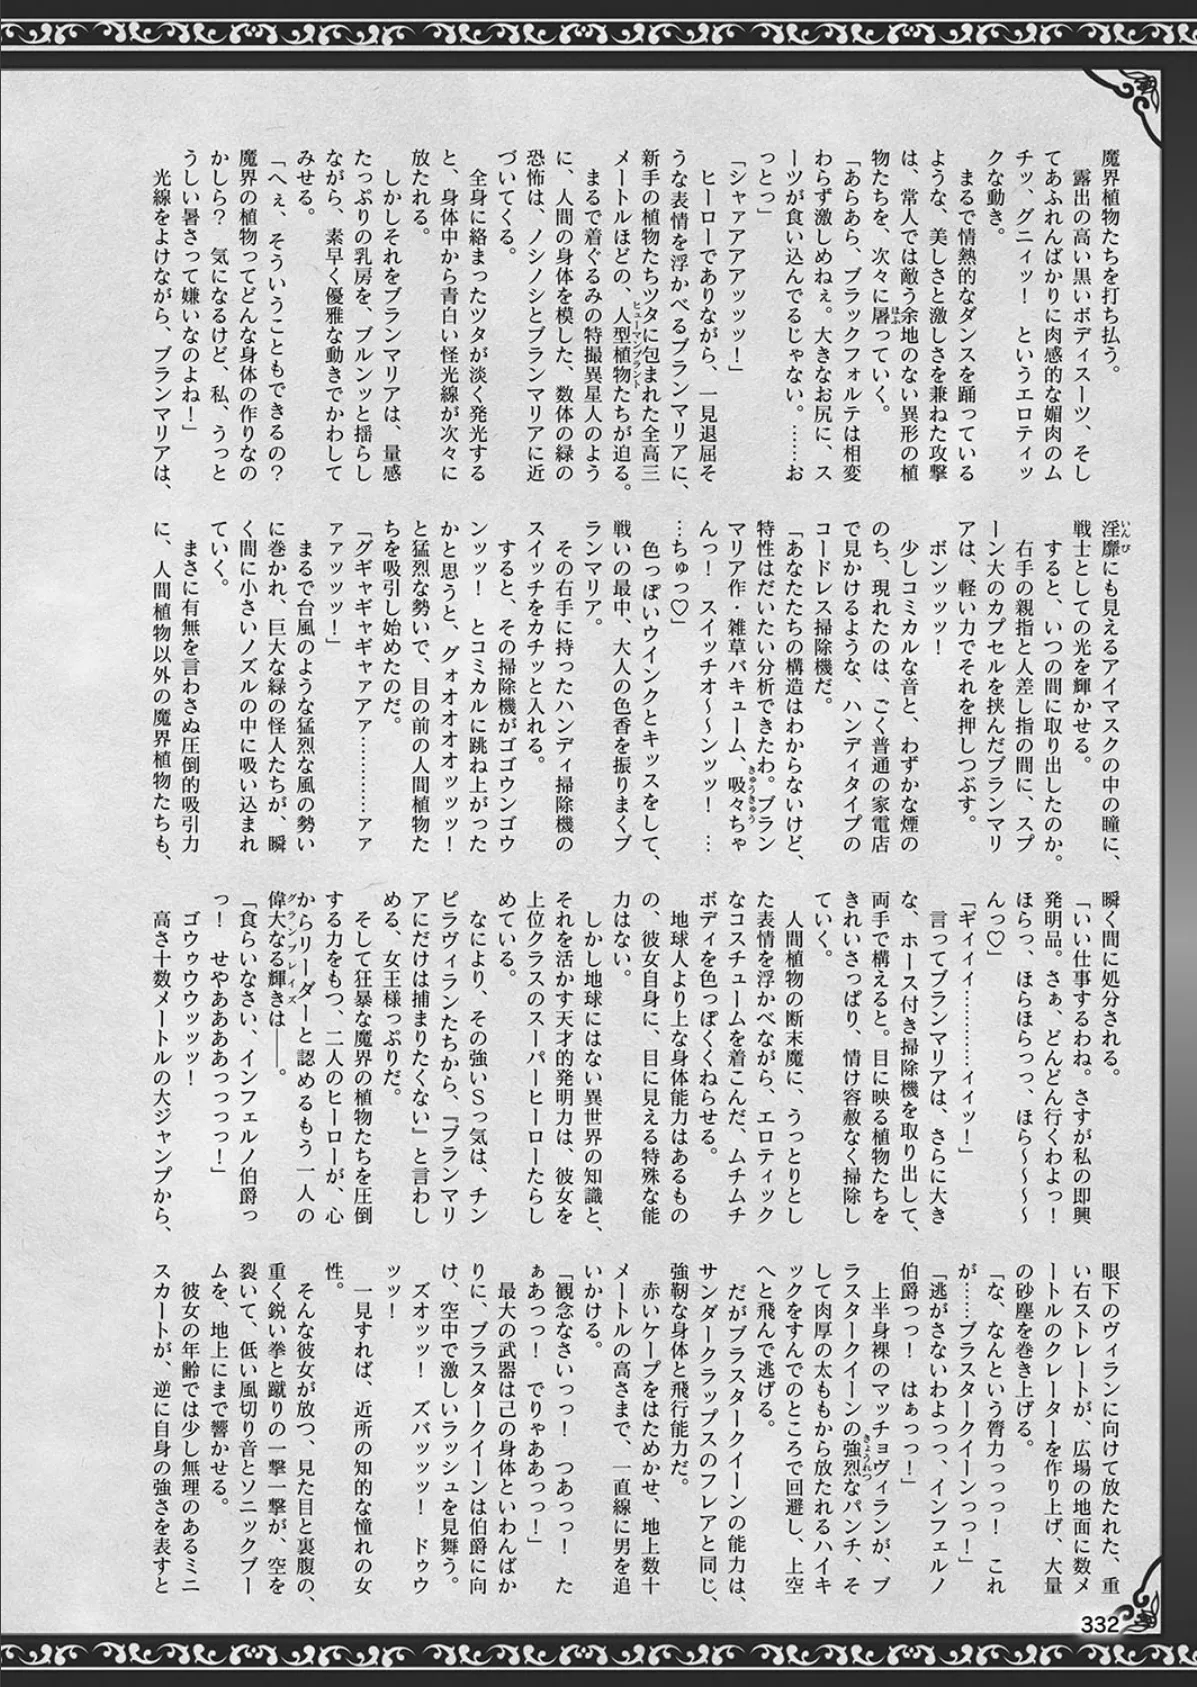 魔界植物たちを打ち払う。
　露出の高い黒いボディスーツ、そし
てあふれんばかりに肉感的な媚肉のム
チッ、グニィッ！　というエロティッ
クな動き。
　まるで情熱的なダンスを踊っている
ような、美しさと激しさを兼ねた攻撃
は、常人では敵う余地のない異形の植
物たちを、次々に屠っていく。
「あらあら、ブラックフォルテは相変
わらず激しめねぇ。大きなお尻に、ス
ーツが食い込んでるじゃない。……お
っとっ」
「シャアアアアッッッ！」
　ヒーローでありながら、一見退屈そ
うな表情を浮かべるブランマリアに、
新手の植物たちツタに包まれた全高三
メートルほどの、人型植物たちが迫る。
　まるで着ぐるみの特撮異星人のよう
に、人間の身体を模した、数体の緑の
恐怖は、ノシノシとブランマリアに近
づいてくる。
　全身に絡まったツタが淡く発光する
と、身体中から青白い怪光線が次々に
放たれる。
　しかしそれをブランマリアは、量感
たっぷりの乳房を、ブルンッと揺らし
ながら、素早く優雅な動きでかわして
みせる。
「へぇ、そういうこともできるの？
魔界の植物ってどんな身体の作りなの
かしら？　気になるけど、私、うっと
うしい暑さって嫌いなのよね！」
　光線をよけながら、ブランマリアは、
淫靡にも見えるアイマスクの中の瞳に、
戦士としての光を輝かせる。
　すると、いつの間に取り出したのか。
　右手の親指と人差し指の間に、スプ
ーン大のカプセルを挟んだブランマリ
アは、軽い力でそれを押しつぶす。
　ボンッッッ！
　少しコミカルな音と、わずかな煙の
のち、現れたのは、ごく普通の家電店
で見かけるような、ハンディタイプの
コードレス掃除機だ。
「あなたたちの構造はわからないけど、
特性はだいたい分析できたわ。ブラン
マリア作・雑草バキューム、吸々ちゃ
んっ！　スイッチオ～～ンッッ！　…
…ちゅっ♡」
　色っぽいウインクとキッスをして、
戦いの最中、大人の色香を振りまくブ
ランマリア。
　その右手に持ったハンディ掃除機の
スイッチをカチッと入れる。
　すると、その掃除機がゴゴウンゴウ
ンッッ！　とコミカルに跳ね上がった
かと思うと、グォオオオオッッッ！
と猛烈な勢いで、目の前の人間植物た
ちを吸引し始めたのだ。
「グギャギャギャアアァ…………アァ
ァアッッッ！」
　まるで台風のような猛烈な風の勢い
に巻かれ、巨大な緑の怪人たちが、瞬
く間に小さいノズルの中に吸い込まれ
ていく。
　まさに有無を言わさぬ圧倒的吸引力
に、人間植物以外の魔界植物たちも、
瞬く間に処分される。
「いい仕事するわね。さすが私の即興
発明品。さぁ、どんどん行くわよっ！
ほらっ、ほらほらっっ、ほら～～～～
んっ♡」
「ギィィイ…………ィィッ！」
　言ってブランマリアは、さらに大き
な、ホース付き掃除機を取り出して、
両手で構えると。目に映る植物たちを
きれいさっぱり、情け容赦なく掃除し
ていく。
　人間植物の断末魔に、うっとりとし
た表情を浮かべながら、エロティック
なコスチュームを着こんだ、ムチムチ
ボディを色っぽくくねらせる。
　地球人より上な身体能力はあるもの
の、彼女自身に、目に見える特殊な能
力はない。
　しかし地球にはない異世界の知識と、
それを活かす天才的発明力は、彼女を
上位クラスのスーパーヒーローたらし
めている。
　なにより、その強いＳっ気は、チン
ピラヴィランたちから、『ブランマリ
アにだけは捕まりたくない』と言わし
める、女王様っぷりだ。
　そして狂暴な魔界の植物たちを圧倒
する力をもつ、二人のヒーローが、心
からリーダーと認めるもう一人の
偉大なる輝きは――。
「食らいなさい、インフェルノ伯爵っ
っ！　せやああああっっっっ！」
　ゴウゥウウッッッ！
　高さ十数メートルの大ジャンプから、
眼下のヴィランに向けて放たれた、重
い右ストレートが、広場の地面に数メ
ートルのクレーターを作り上げ、大量
の砂塵を巻き上げる。
「な、なんという膂力っっっ！　これ
が……ブラスタークイーンっっ！」
「逃がさないわよっっ、インフェルノ
伯爵っっ！　はぁっっ！」
　上半身裸のマッチョヴィランが、ブ
ラスタークイーンの強烈なパンチ、そ
して肉厚の太ももから放たれるハイキ
ックをすんでのところで回避し、上空
へと飛んで逃げる。
　だがブラスタークイーンの能力は、
サンダークラップスのフレアと同じ、
強靭な身体と飛行能力だ。
　赤いケープをはためかせ、地上数十
メートルの高さまで、一直線に男を追
いかける。
「観念なさいっっ！　つあっっ！　た
ぁあっっ！　でりゃああっっ！」
　最大の武器は己の身体といわんばか
りに、ブラスタークイーンは伯爵に向
け、空中で激しいラッシュを見舞う。
　ズオッッ！　ズバッッッ！　ドゥウ
ッッ！
　一見すれば、近所の知的な憧れの女
性。
　そんな彼女が放つ、見た目と裏腹の、
重く鋭い拳と蹴りの一撃一撃が、空を
裂いて、低い風切り音とソニックブー
ムを、地上にまで響かせる。
　彼女の年齢では少し無理のあるミニ
スカートが、逆に自身の強さを表すと
332